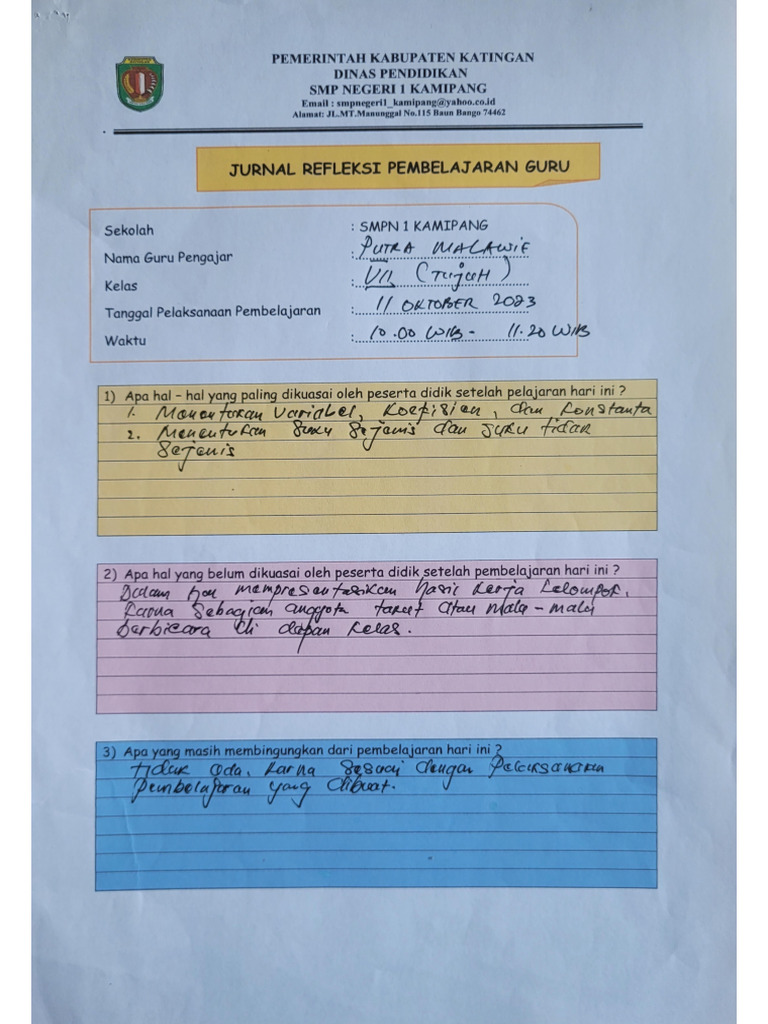 PEMERINTAH KABUPATEN KATINGAN
DINAS PENDIDIKAN
SMP NEGERI 1 KAMIPANG
Email : smpnegeri1_kamipang@yahoo.co.id
Alamat: JL.MT.Manunggal No.115 Baun Bango 74462
JURNAL REFLEKSI PEMBELAJARAN GURU
Sekolah : SMPN 1 KAMIPANG
Nama Guru Pengajar : PUTRA MALAWIE
Kelas : VII (Tujuh)
Tanggal Pelaksanaan Pembelajaran : 11 OKTOBER 2023
Waktu : 10.00 WIB - 11.20 WIB
1) Apa hal - hal yang paling dikuasai oleh peserta didik setelah pelajaran hari ini ?
1. Menentukan variabel, Koefisien, dan Konstanta
2. Menentukan suku sejenis dan suku tidak
sejenis
2) Apa hal yang belum dikuasai oleh peserta didik setelah pembelajaran hari ini ?
Dalam hal mempresentasikan hasil kerja kelompok,
karna sebagian anggota takut atau malu - malu
berbicara di depan kelas.
3) Apa yang masih membingungkan dari pembelajaran hari ini ?
tidak ada, karna sesuai dengan pelaksanaan
pembelajaran yang dibuat.